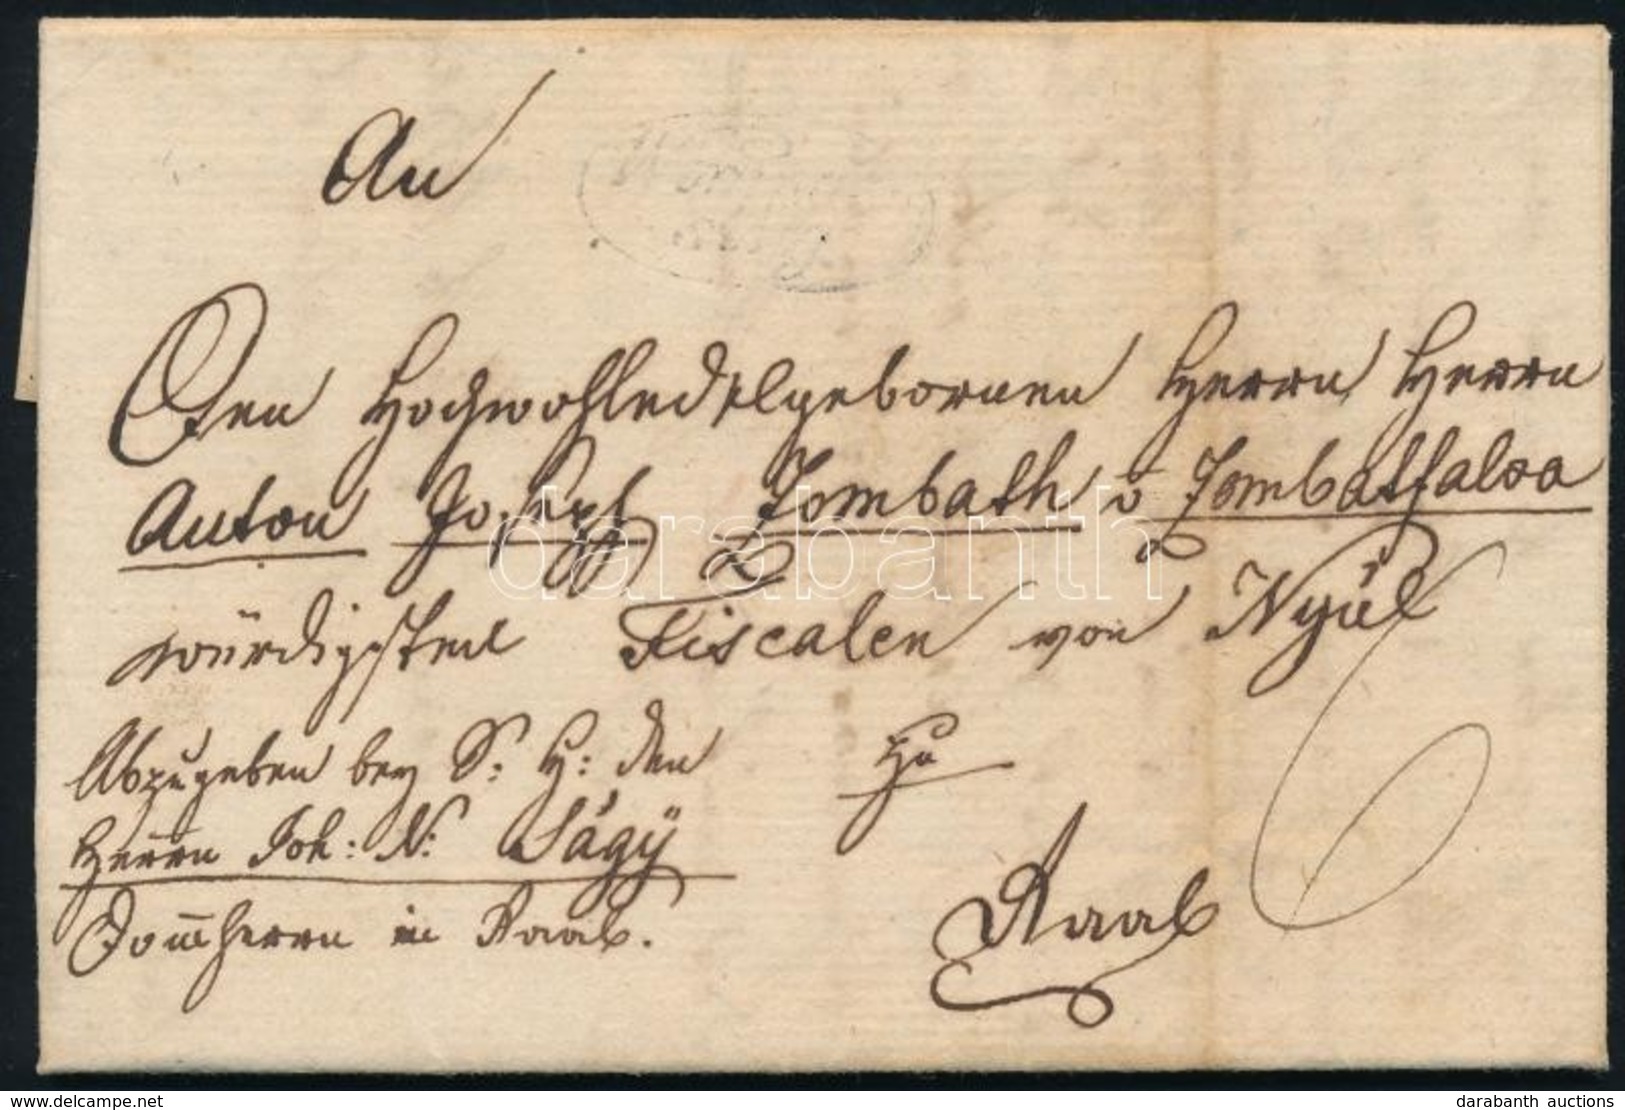 An
Den Hochwohledelgebornen Herrn Herrn
Anton Joseph Zombath v Zombathfalva
würdigsten Fiscalen von Nyúl
Abzugeben bey S: H: den
zu
Herrn Joh: N: Ságÿ
Domherrn in Raab.
Raab
darabanth
www.delcampe.net
darabanth auctions